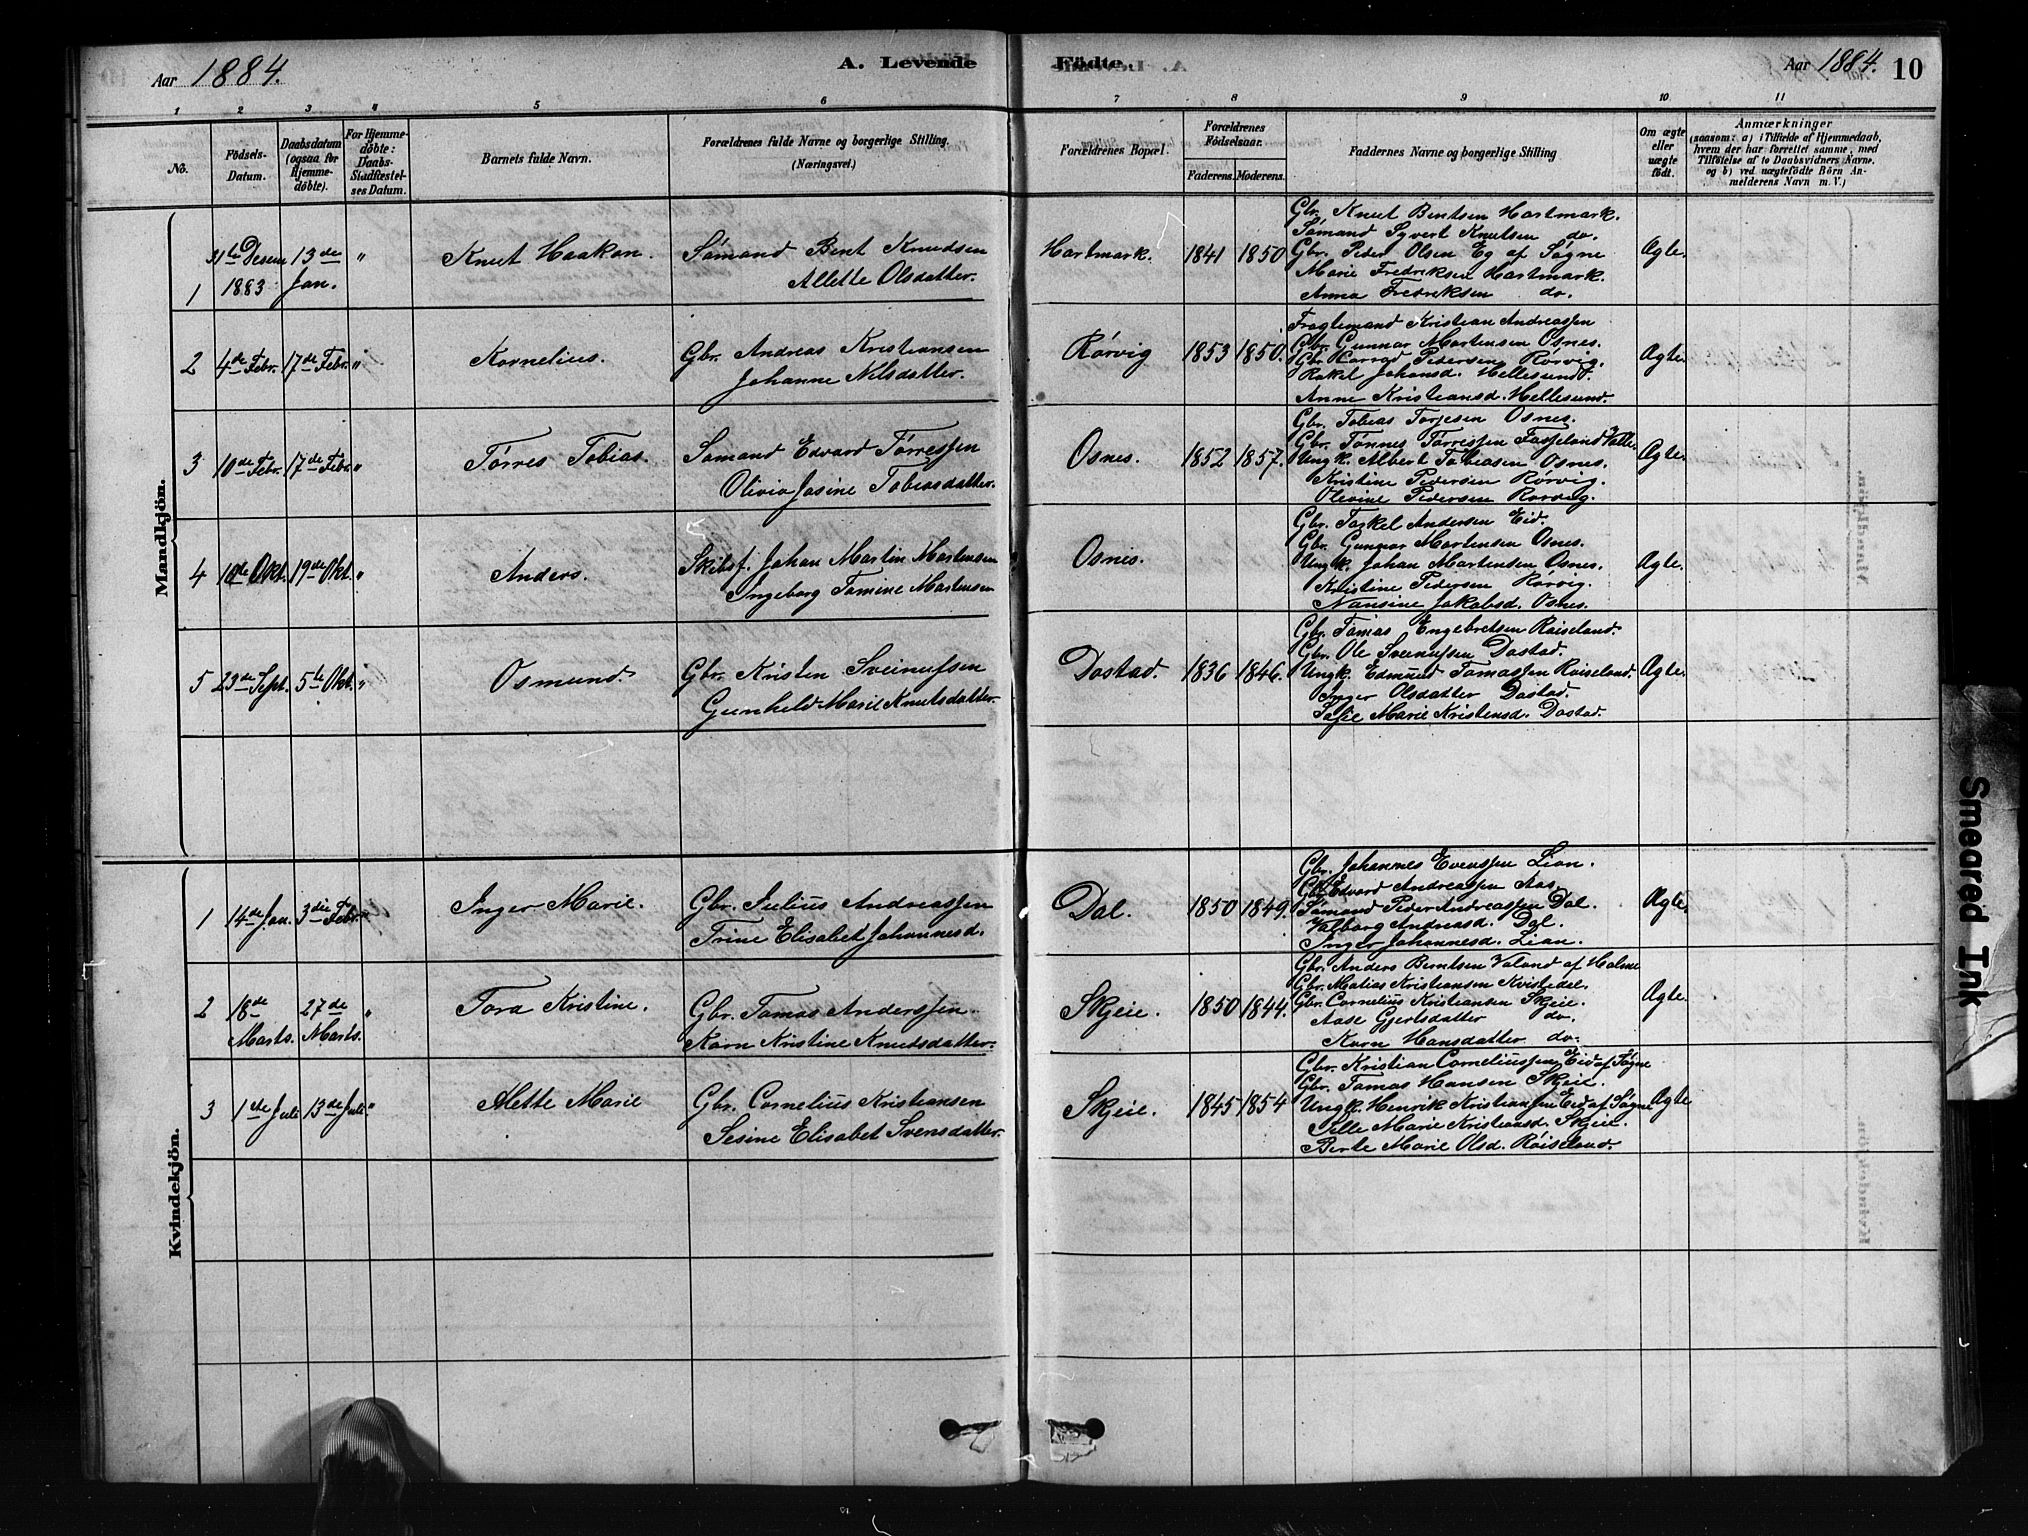 Aar 1884. A. Levende Födte. Aar 1884. 10
1 2 3 4 5 6 7 8 9 10 11
No.
Födsels-Datum.
Daabsdatum (ogsaa for Hjemme-döbte).
For Hjemme-döbte: Daabs-Stadfæstel-ses Datum.
Barnets fulde Navn.
Forældrenes fulde Navne og borgerlige Stilling.
(Næringsvei.)
Forældrenes Bopæl.
Forældrenes Födselsaar.
Faderens. Moderens.
Faddernes Navne og borgerlige Stilling
Om ægte eller uægte födt.
Anmærkninger
(saasom: a) i Tilfælde af Hjemmedaab,
hvem der har forrettet samme, med
Tilföielse af to Daabsvidners Navne.
og b) ved uægtefödte Börn An-
melderens Navn m. V.)
Mandkjön.
1 31te Desem 1883 13de Jan. " Knut Haakon. Sømand Bent Knudsen
Allette Olsdatter.
Hartmark. 1841 1850 Ægte.
Gbr. Knut Bentsen Hartmark.
Sømand Syvert Knutsen do.
Gbr. Peder Olsen Eg af Søgne
Marie Fredriksen Hartmark.
Anna Fredriksen do.
2 4de Febr. 17de Febr. " Kornelius. Gbr. Andreas Kristiansen
Johanne Nilsdatter.
Rørvig 1853 1850. Ægte.
Fragtemand Kristian Andreassen
Gbr. Gunnar Martensen Osnes.
Gbr. Pedersen Rørvig.
Rakel Johansd. Hellesund.
Anne Kristiansd. Hellesund.
3 10de Febr. 17de Febr. " Tørres Tobias. Sømand Edvard Tørressen
Olivia Josine Tobiasdatter.
Osnes. 1852 1857. Ægte.
Gbr. Tobias Torjesen Osnes.
Gbr. Tønnes Tørressen Fasseland
Ungk. Albert Tobiasen Osnes.
Kristine Pedersen Rørvig
Olevine Pedersen Rørvig.
4 10de Okt. 19de Okt. " Anders. Skibsf. Johan Martin Martensen
Ingeborg Tomine Martensen
Osnes. Ægte.
Gbr. Torkel Andersen Eid.
Gbr. Gunnar Martensen Osnes.
Ungk. Johan Martensen Osnes.
Kristine Pedersen Rørvig
Nansine Jakobsd. Osnes.
5 23de Sept. 5te Okt. " Osmund. Gbr. Kristen Sveinussen
Gunhild Marie Knutsdatter.
Dostad. 1836 1846. Ægte.
Gbr. Tomas Engebretsen Røiseland.
Gbr. Ole Sveinussen Dostad.
Ungk. Edmund Tomassen Røiseland.
Inger Olsdatter Dostad.
Sofie Marie Kristensd. Dostad.
Kvindekjön.
1 14de Jan. 3die Febr. " Inger Marie. Gbr. Julius Andreassen
Trine Elisabet Johannesd.
Dal. 1850 1849. Ægte.
Gbr. Johannes Evenssen Lian.
Gbr. Edvard Andreassen Aas
Sømand Peder Andreassen Dal.
Valborg Andreasd. Dal.
Inger Johannesd. Lian.
2 18de Marts. 27de Marts. " Tora Kristine. Gbr. Tomas Anderssen.
Karn Kristine Knudsdatter.
Skjeie. 1850 1844. Ægte.
Gbr. Anders Berntsen Valand af Holme
Gbr. Matias Kristiansen Kvistedal.
Gbr. Cornelius Kristiansen Skjeie.
Aase Gjertsdatter do.
Karn Hansdatter do.
3 1ste Juli 13de Juli " Mette Marie Gbr. Cornelius Kristiansen
Sesine Elisabet Svensdatter.
Skjeie. 1845 1854 Ægte
Gbr. Kristian Corneliussen Eid af Søgne
Gbr. Tomas Hansen Skjeie.
Ungk. Henrik Kristiansen Eid af Søgne
Sille Marie Kristiansd. Skjeie.
Berte Marie Olsd. Røiseland.
Smeared Ink